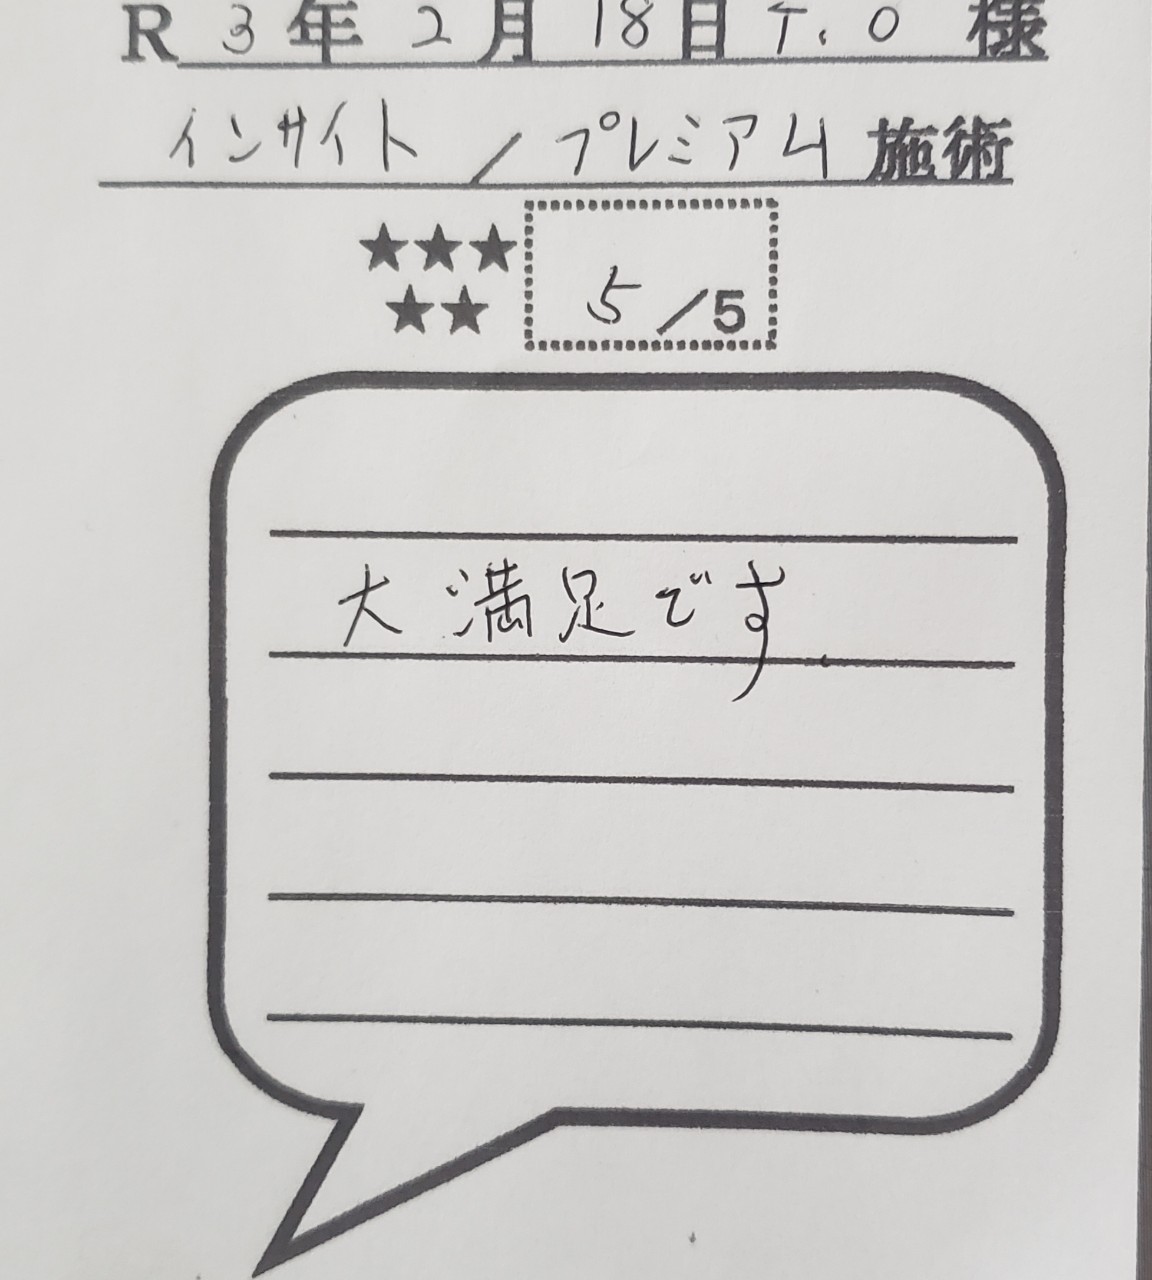 R 3年 2月 18日 T.O 様
インサイト / プレミアム 施術
★★★
★★
5/5
大満足です.